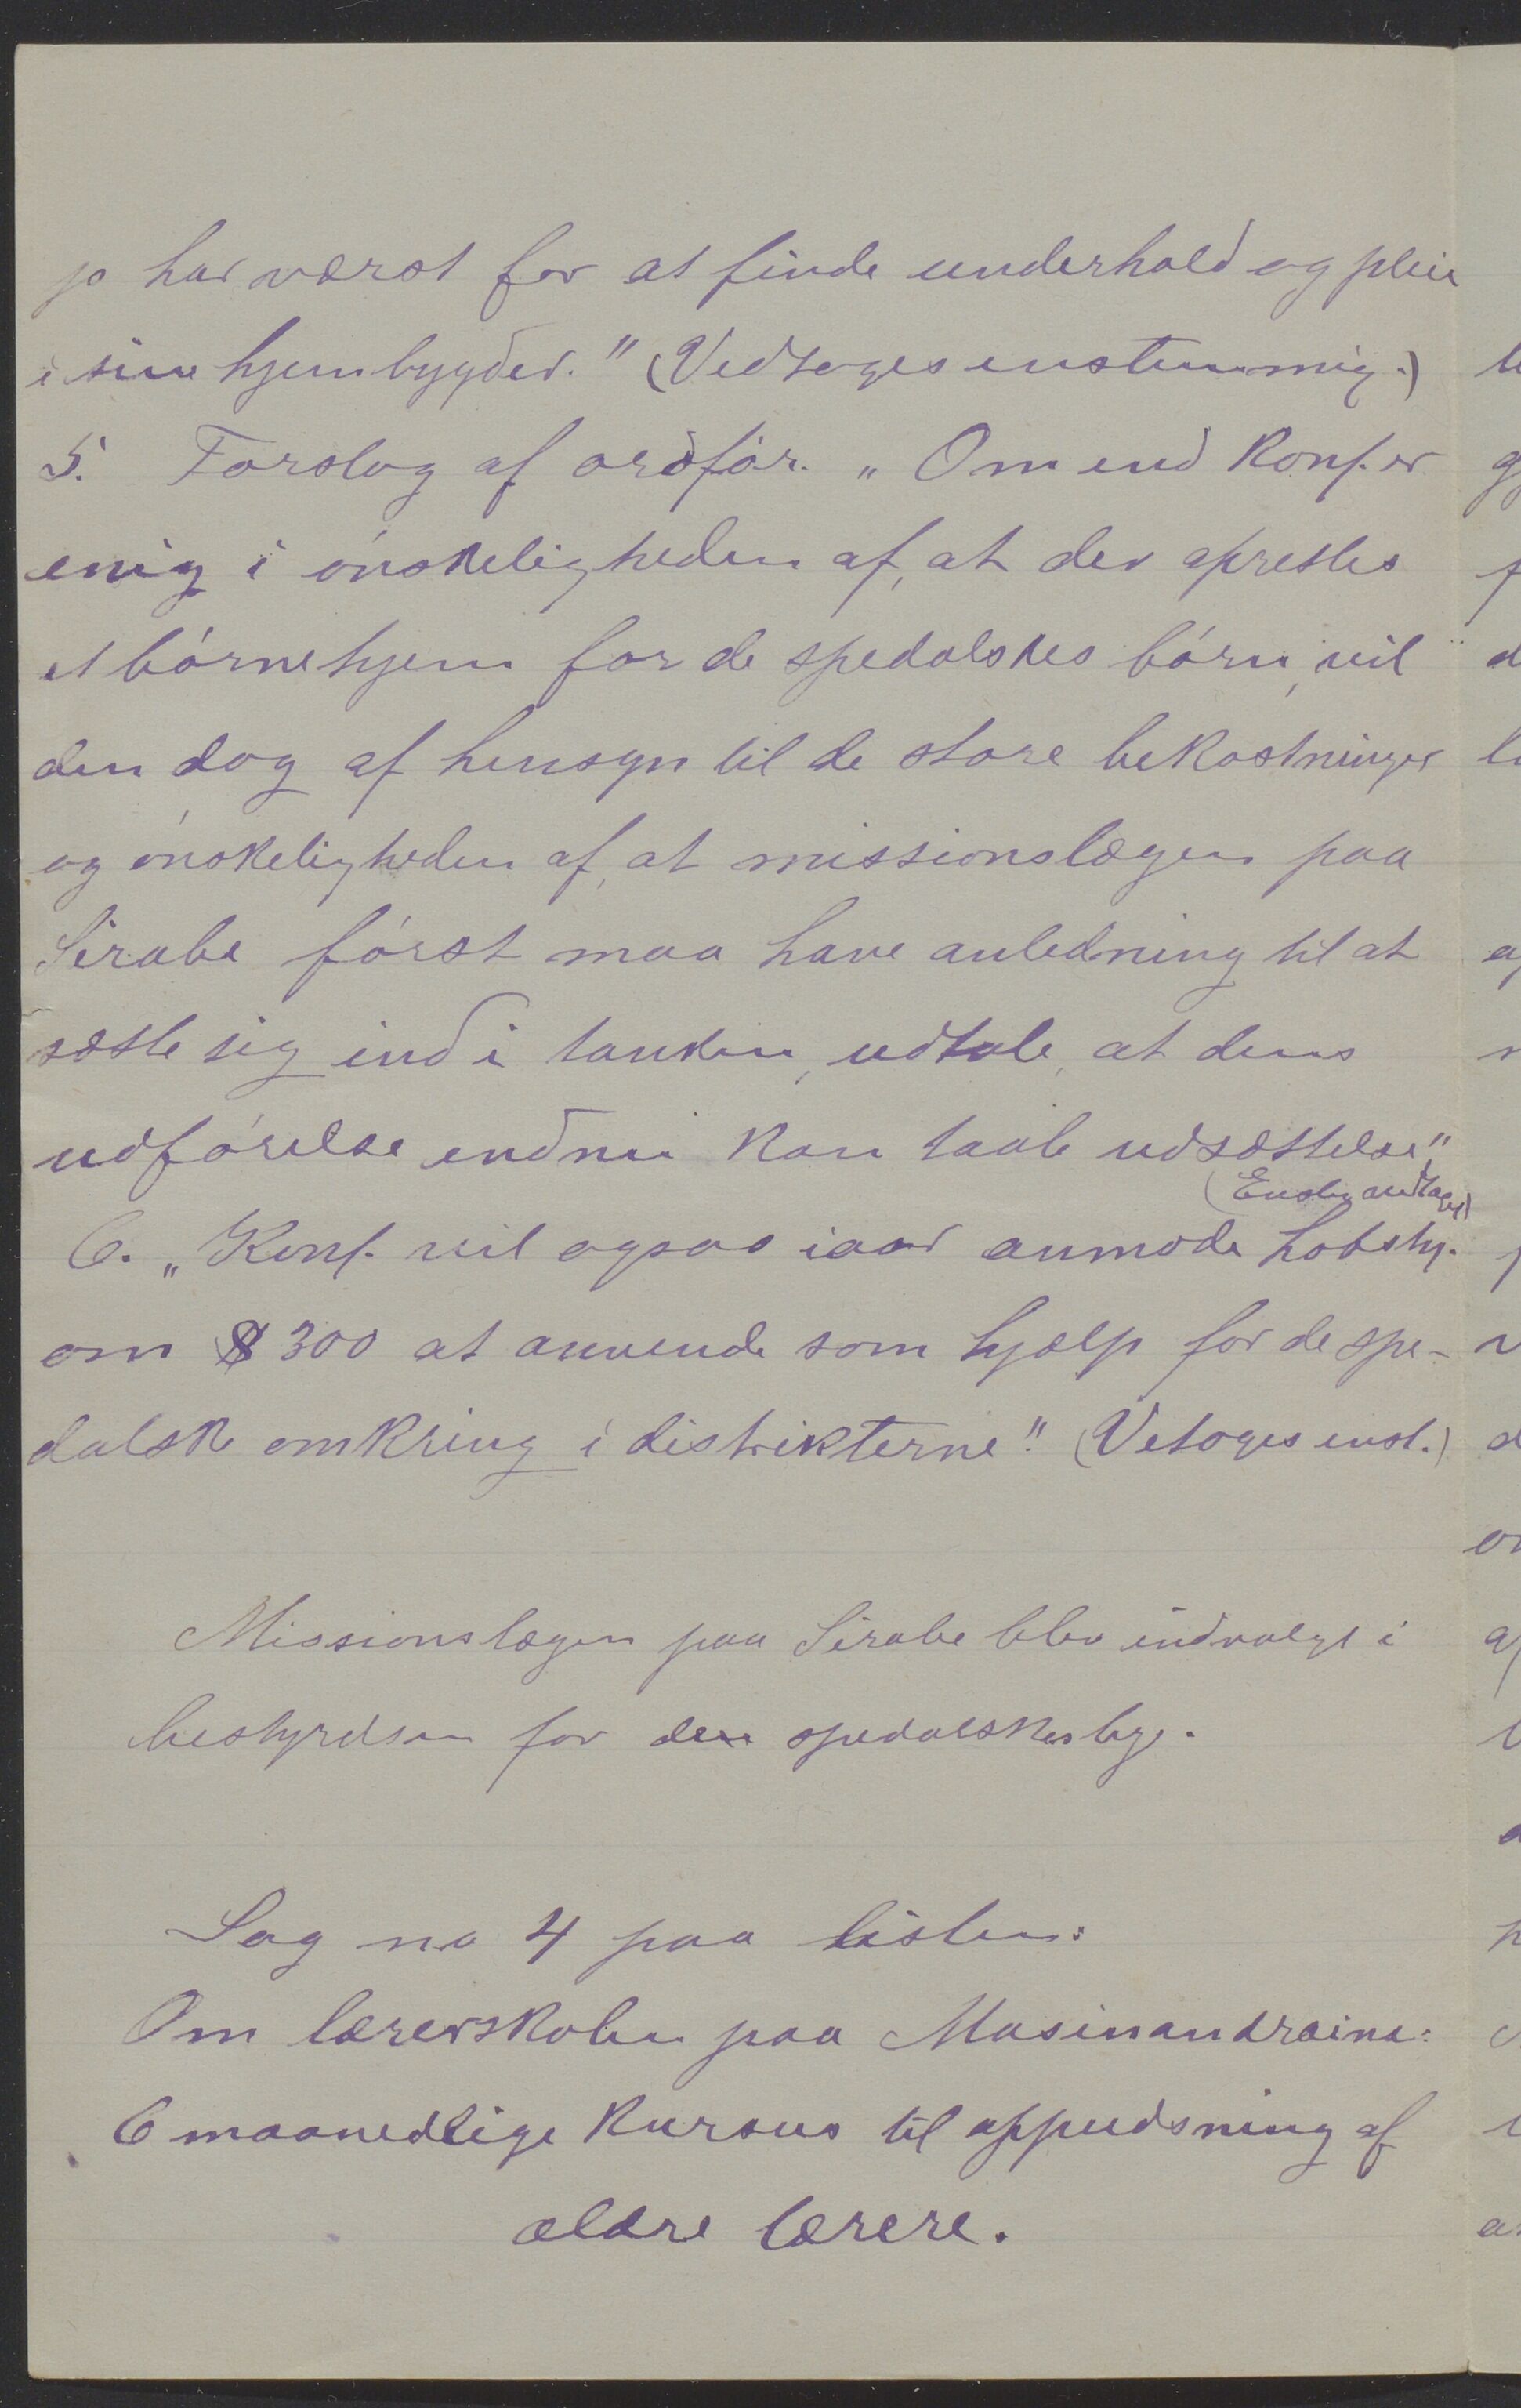 jo har været for at finde underhold og pleie
i sine hjembygder." (Vedtoges enstemmig.)
5. Forslag af ordfør. „Om end Konf. er
enig i ønskeligheden af, at der oprettes
et børnehjem for de spedalskes børn, vil
den dog af hensyn til de store bekostninger
og ønskeligheden af, at missionslægen paa
Sirabe først maa have anledning til at
sætte sig ind i tanken, udtale, at dens
udførelse endnu kan taale udsættelse"
(Enst. antaget)
6. „Konf. vil ogsaa iaar anmode hobsty.
om $300 at anvende som hjælp for de spe-
dalske omkring i distrikterne". (Vetoges enst.)
Missionslægen paa Sirabe blev indvalgt i
bestyrelsen for den spedalskes by.
Sag no 4 paa listen:
Om lærerskolen paa Masinandraina:
6 maanedlige kursus til oppudsning af
ældre lærere.